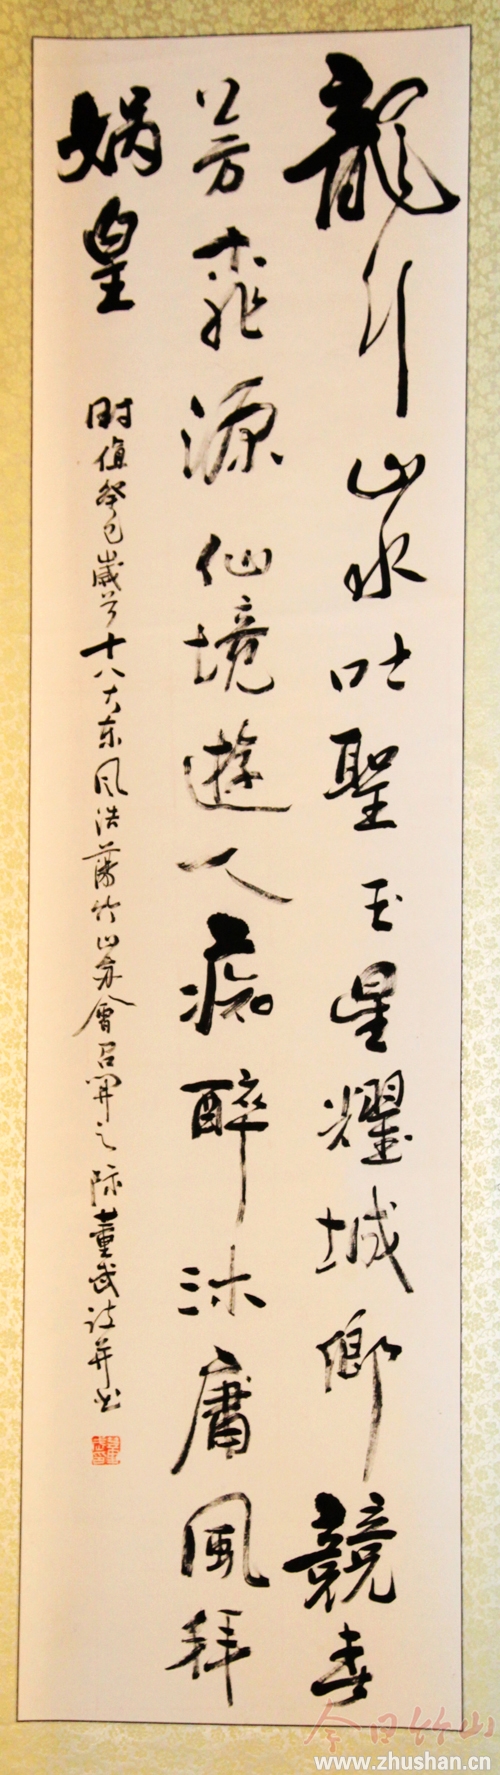 龍行山水吐聖玉星耀城鄉競春
芳桃源仙境遊人痴醉沐庸風拜
媧皇
时值癸巳歲首十八大东风浩蕩竹山两會召開之际董武诗并书
今日竹山
www.zhushan.cn